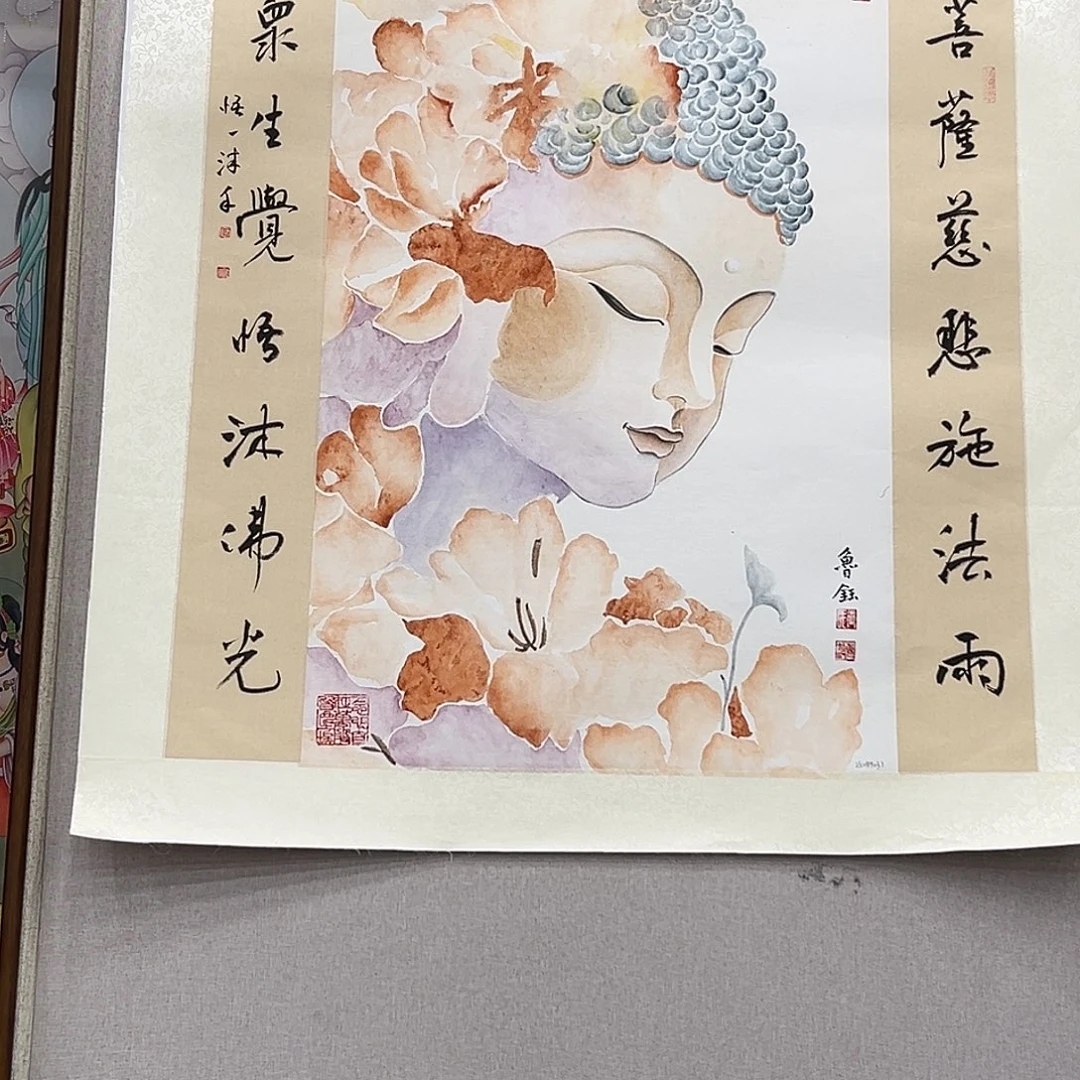 菩薩慈悲施法雨
眾生覺悟沐佛光
悟一沐手
魯鈺